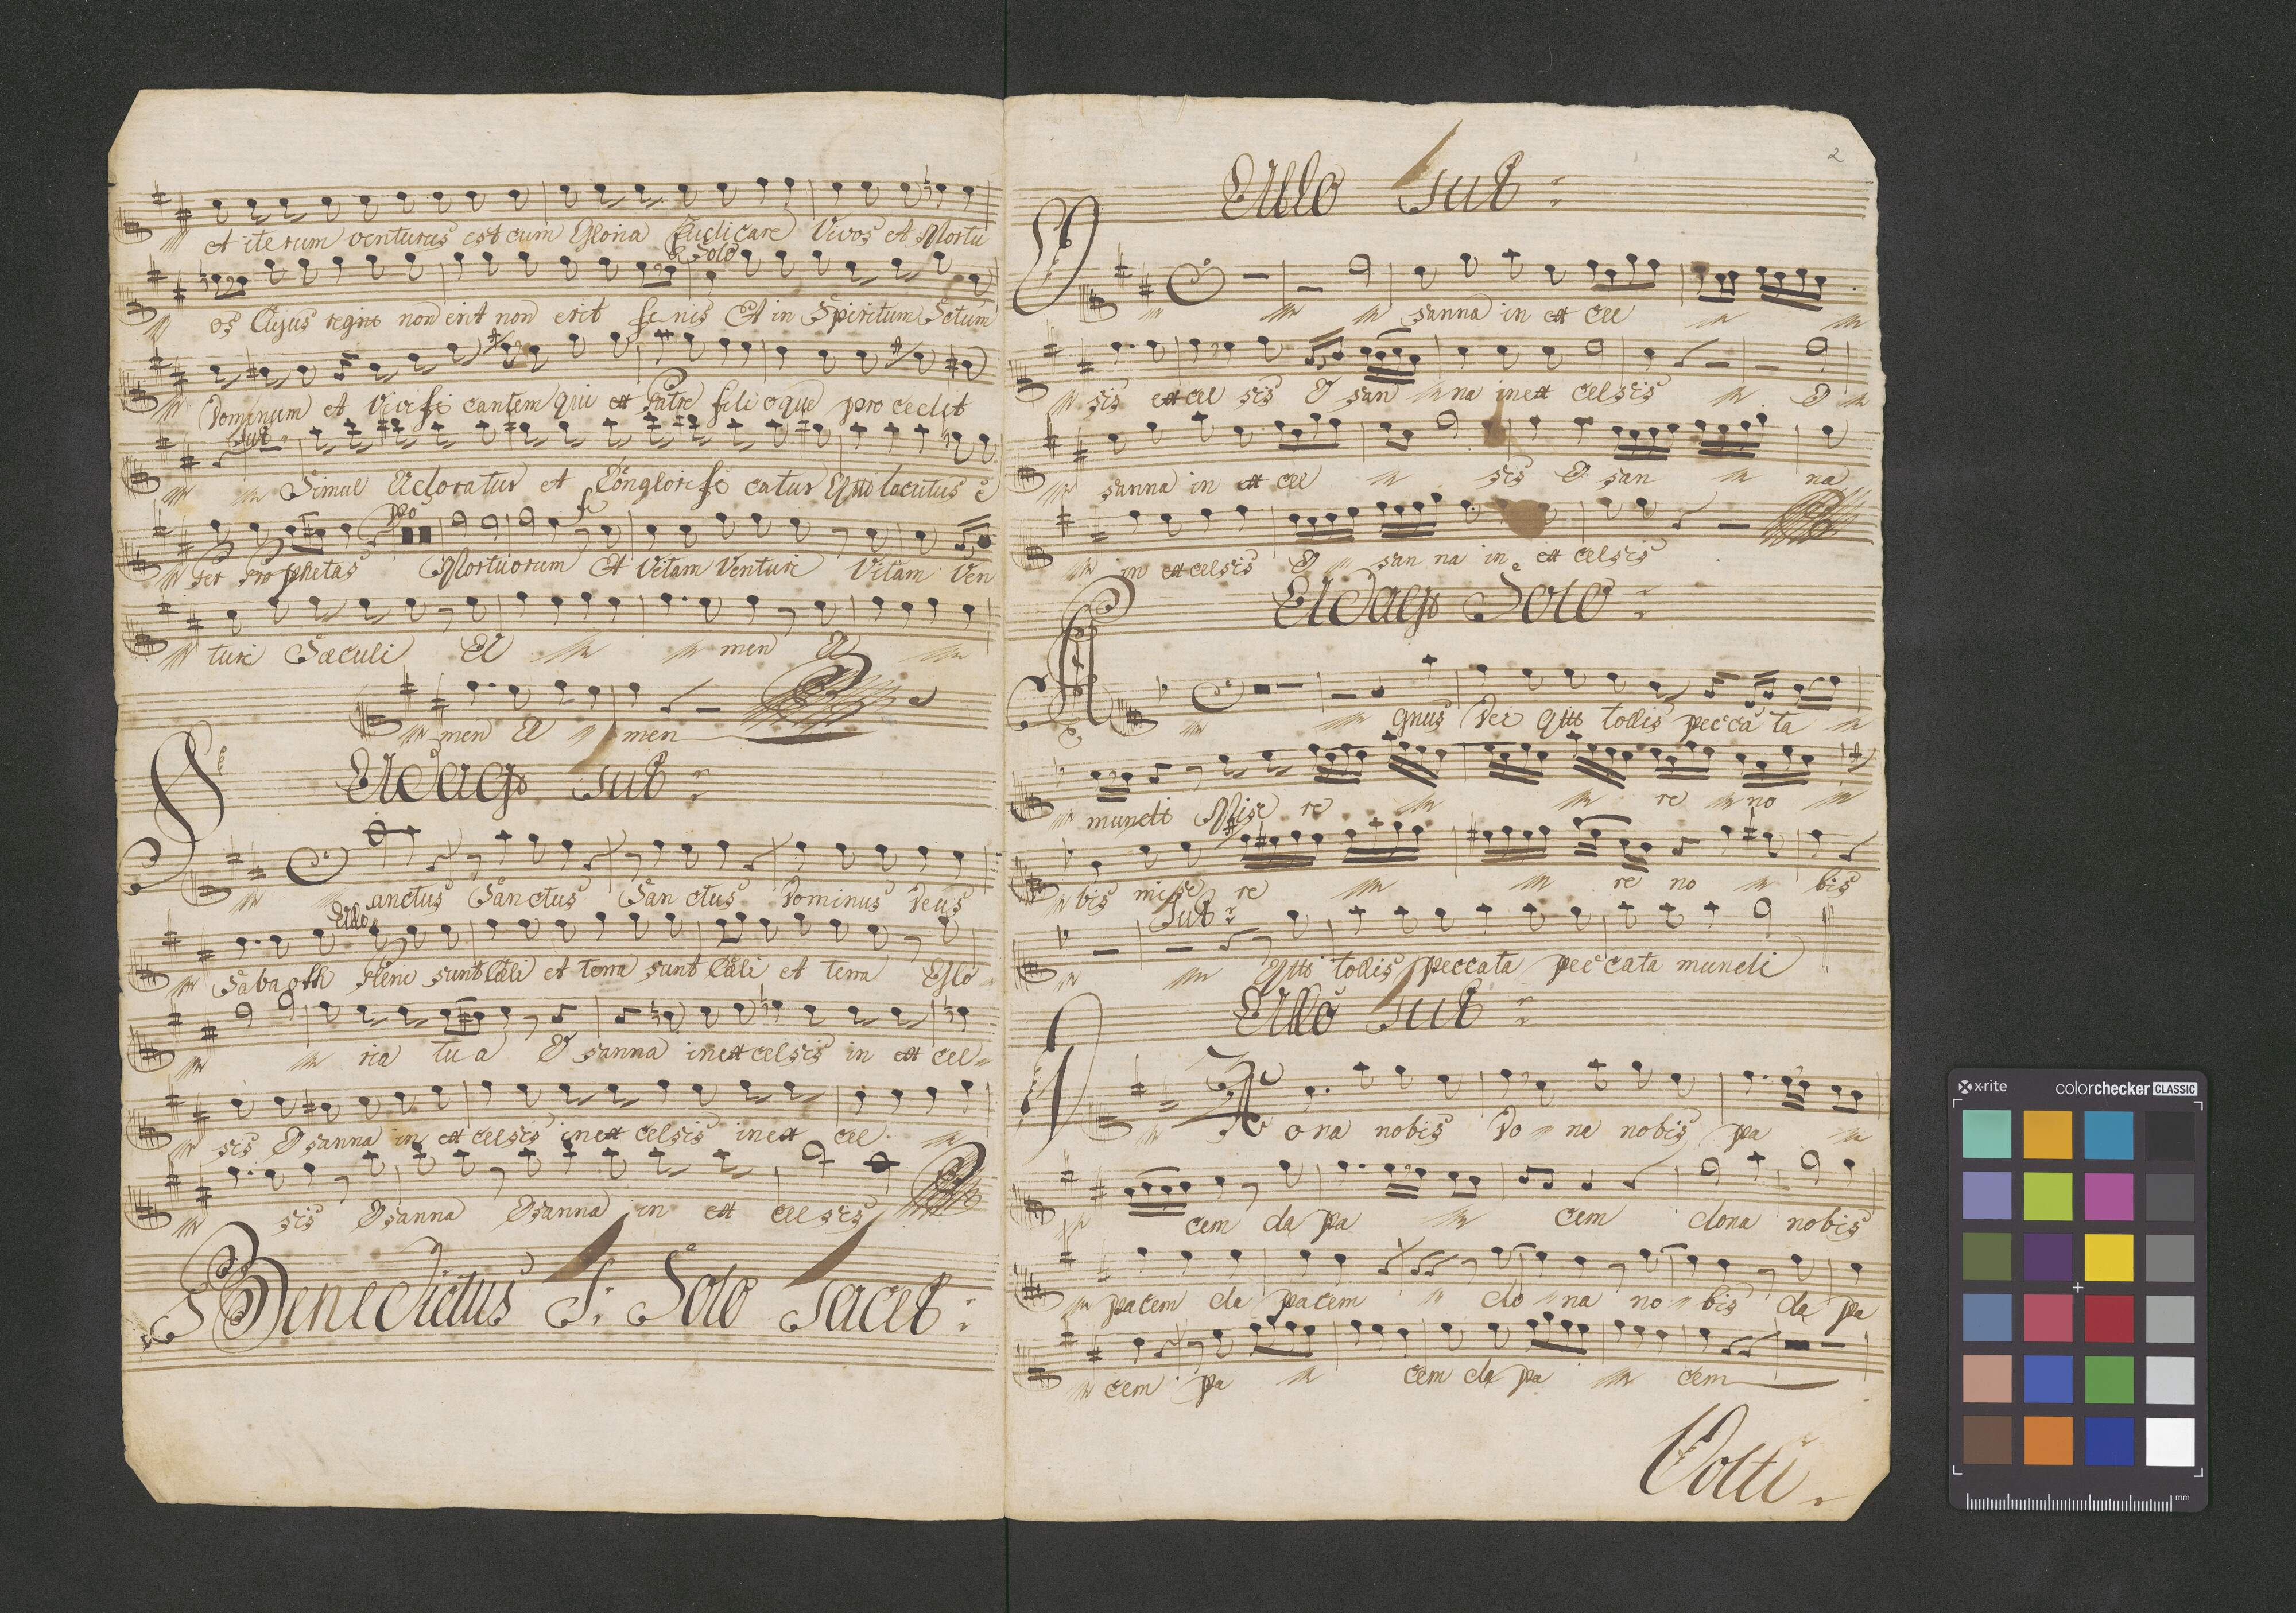 et iterum venturus est cum Gloria Judicare Vivos et Mortu
Solo
os Cujus regni non erit non erit finis Et in Spiritum Sctum
Dominum et Vivifi cantem qui ex Patre filioque procedit
Tut:
Simul Adoratur et Conglorifi catur Qui locutus e
po
fe
per Prophetas Mortuorum Et Vitam Venturi Vitam Ven
turi Saeculi A men A
men A men
Adago Tut:
S
anctus Sanctus Sanctus Dominus Deus
Allo
Sabaoth Pleni sunt Caeli et terra sunt Caeli et terra Glo
ria tua O sanna in ex celsis in ex cel=
sis Osanna in ex celsis in ex celsis in ex cel
sis Osanna Osanna in ex celsis
Benedictus S: Solo Tacet:
2
Allo Tut:
O
sanna in ex cel
sis ex cel sis O san na in ex celsis O
sanna in ex cel sis O san na
in ex celsis O san na in ex celsis
Adago Solo:
A
gnus Dei qui tollis pecca ta
mundi Mise re re no
bis mise re re no bis
Tut:
Qui tollis peccata peccata mundi
Allo Tut:
D
ona nobis Do = na nobis pa
cem da pa cem dona nobis
pacem da pacem do = na no = bis da pa
cem pa cem da pa cem
Volti.
x-rite colorchecker CLASSIC
mm